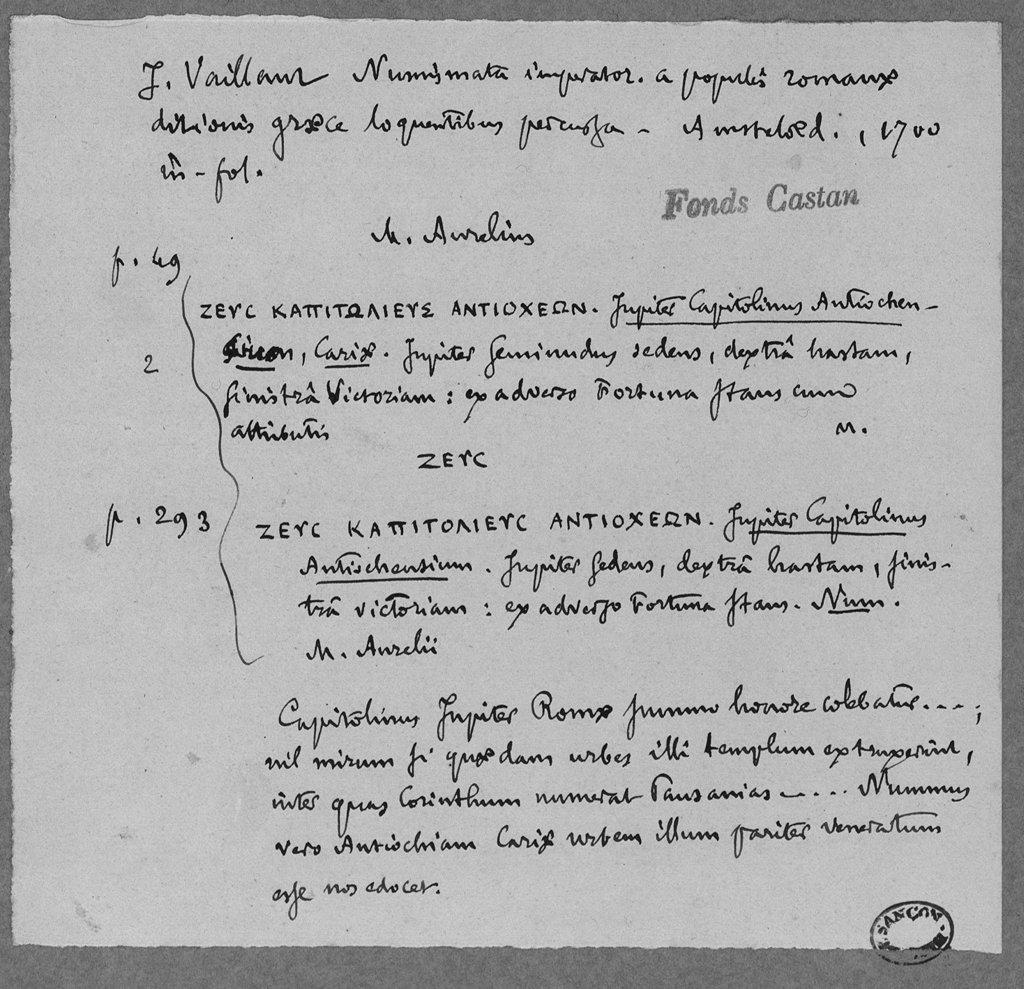 J. Vaillant Numismata imperator. a populis romanæ
ditionis græce loquentibus percussa - Amstelœd., 1700
in-fol.
Fonds Castan
M. Aurelius
p. 49
ΖΕΥC ΚΑΠΙΤΩΛΙΕΥΣ ΑΝΤΙΟΧΕΩΝ. Jupiter Capitolinus Antiochen-
sium, Cariæ. Jupiter seminudus sedens, dextrâ hastam,
2
sinistrâ Victoriam : ex adverso Fortuna stans cum
attributis M.
ΖΕΥC
p. 293
ΖΕΥC ΚΑΠΙΤΟΛΙΕΥC ΑΝΤΙΟΧΕΩΝ. Jupiter Capitolinus
Antiochensium. Jupiter sedens, dextrâ hastam, sinis-
trâ victoriam : ex adverso Fortuna stans. Num.
M. Aurelii
Capitolinus Jupiter Romæ summo honore colebatur....;
nil mirum si quædam urbes illi templum extruxerint,
inter quas Corinthum numerat Pausanias ..... Nummus
vero Antiochiam Cariæ urbem illum pariter veneratum
esse nos edocet.